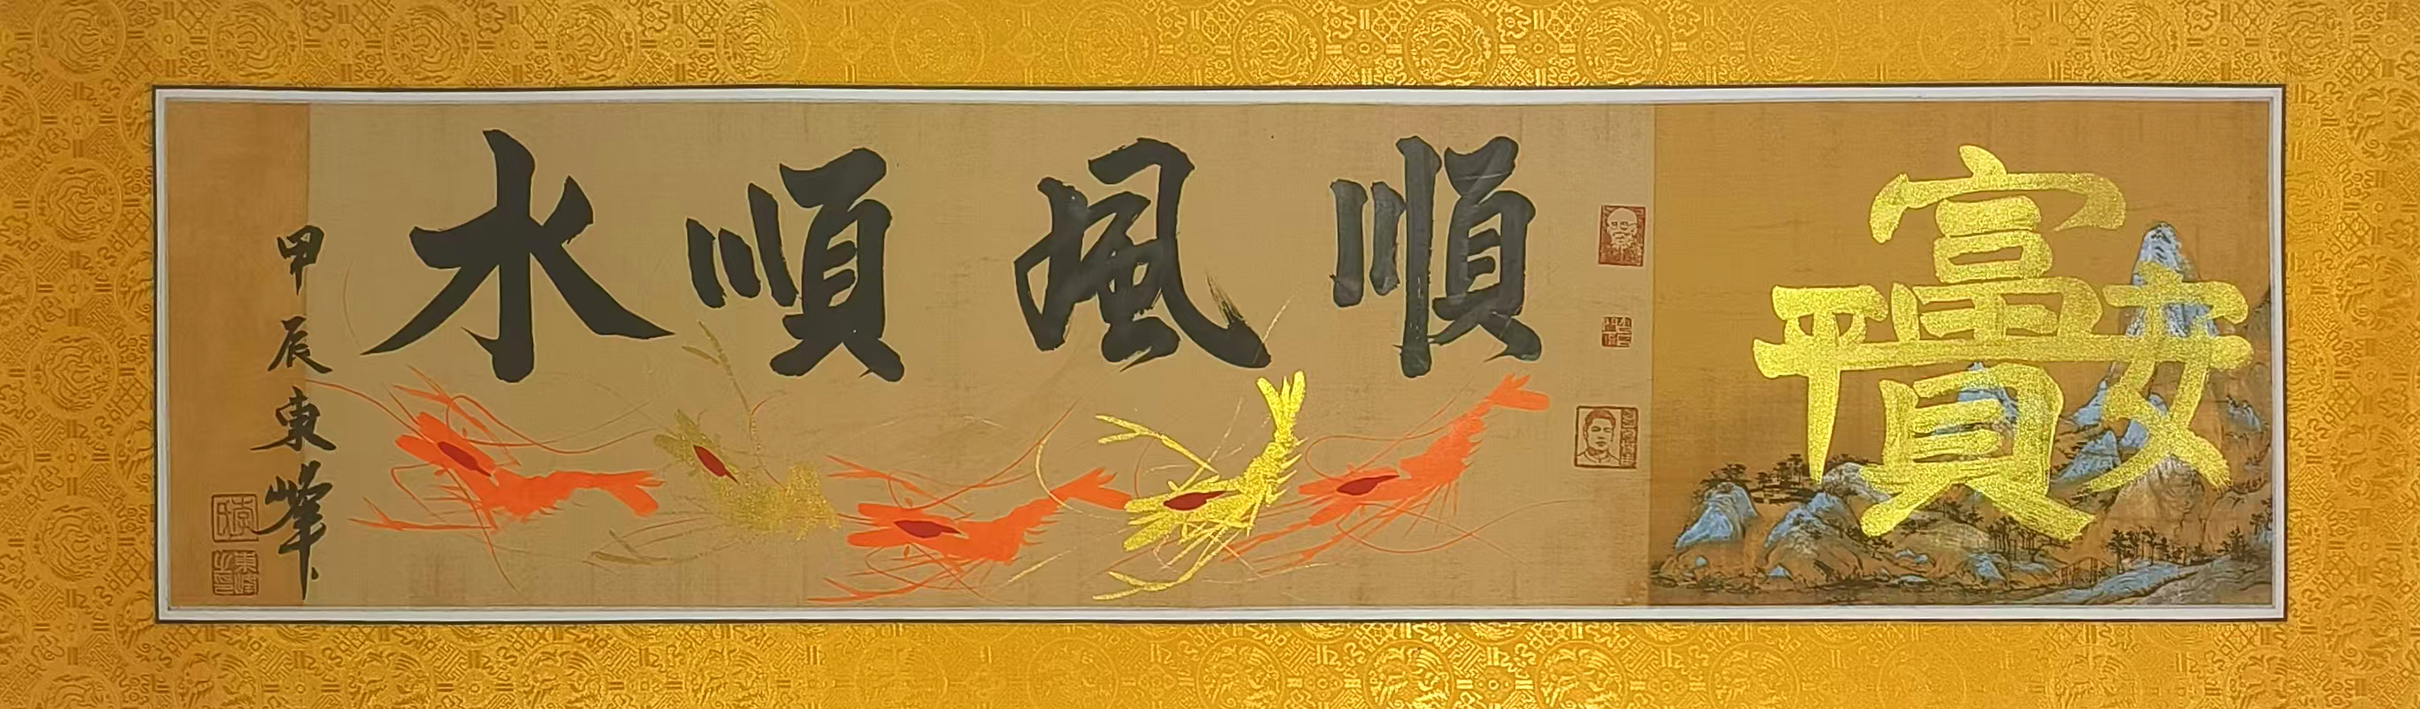 富貴平安
順風順水
甲辰東峰